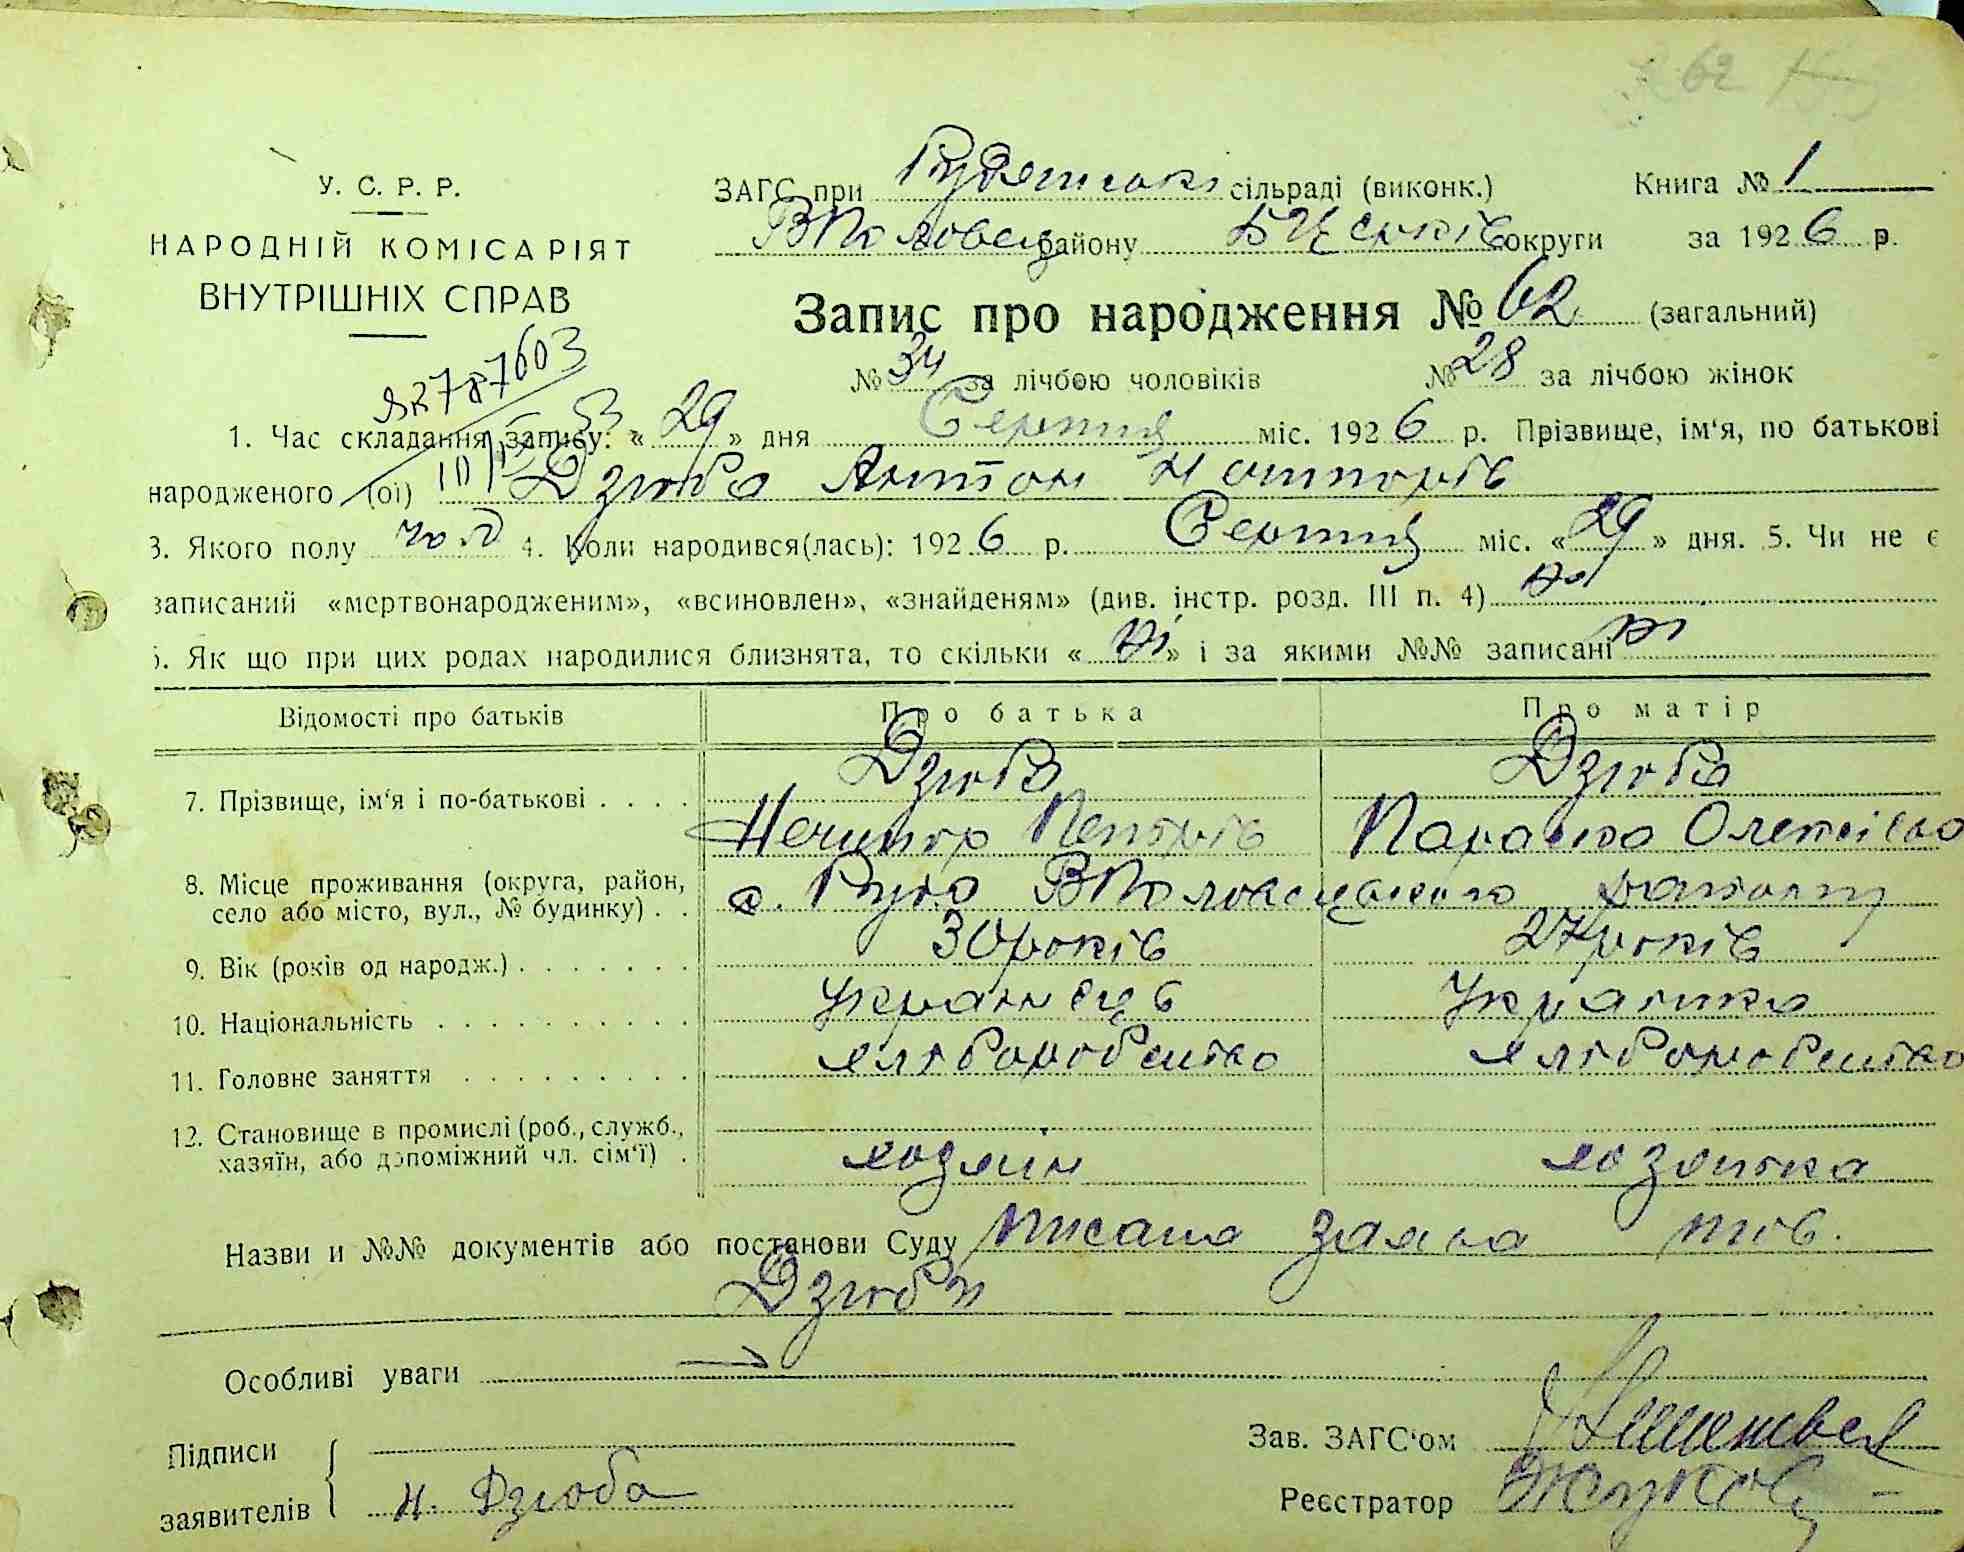 62
У. С. Р. Р.
НАРОДНІЙ КОМІСАРІЯТ
ВНУТРІШНІХ СПРАВ
ЗАГС при Рудянські сільраді (виконк.) Книга № 1
ВПоловец району БЦерків округи за 1926 р.
Запис про народження № 62 (загальний)
№ 34 за лічбою чоловіків № 28 за лічбою жінок
1. Час складання запису: « 29 » дня Серпня міс. 1926 р. Прізвище, ім'я, по батькові
народженого (ої) Дзюба Антон
3. Якого полу чол 4. Коли народився(лась): 1926 р. Серпня міс. « 29 » дня. 5. Чи не є
записаний «мертвонародженим», «всиновлен», «знайденям» (див. інстр. розд. III п. 4) Ні
6. Як що при цих родах народилися близнята, то скільки « Ні » і за якими №№ записані Ні
Відомості про батьків Про батька Про матір
7. Прізвище, ім'я і по-батькові . . . . Дзюба Дзюба
Нечипор Петрів Параска Олексієва
8. Місце проживання (округа, район,
село або місто, вул., № будинку) . . с. Руда ВПоловецького району
9. Вік (років од народж.) . . . . . . . 30 років 27 років
10. Національність . . . . . . . . . . Українець Українка
11. Головне заняття . . . . . . . . . хліборобство хліборобство
12. Становище в промислі (роб., служб.,
хазяїн, або допоміжний чл. сім'ї) . хазяин хозяйка
Назви и №№ документів або постанови Суду Писана заява тов.
Дзюби
Особливі уваги
Підписи
заявителів Н. Дзюба
Зав. ЗАГС'ом
Реєстратор